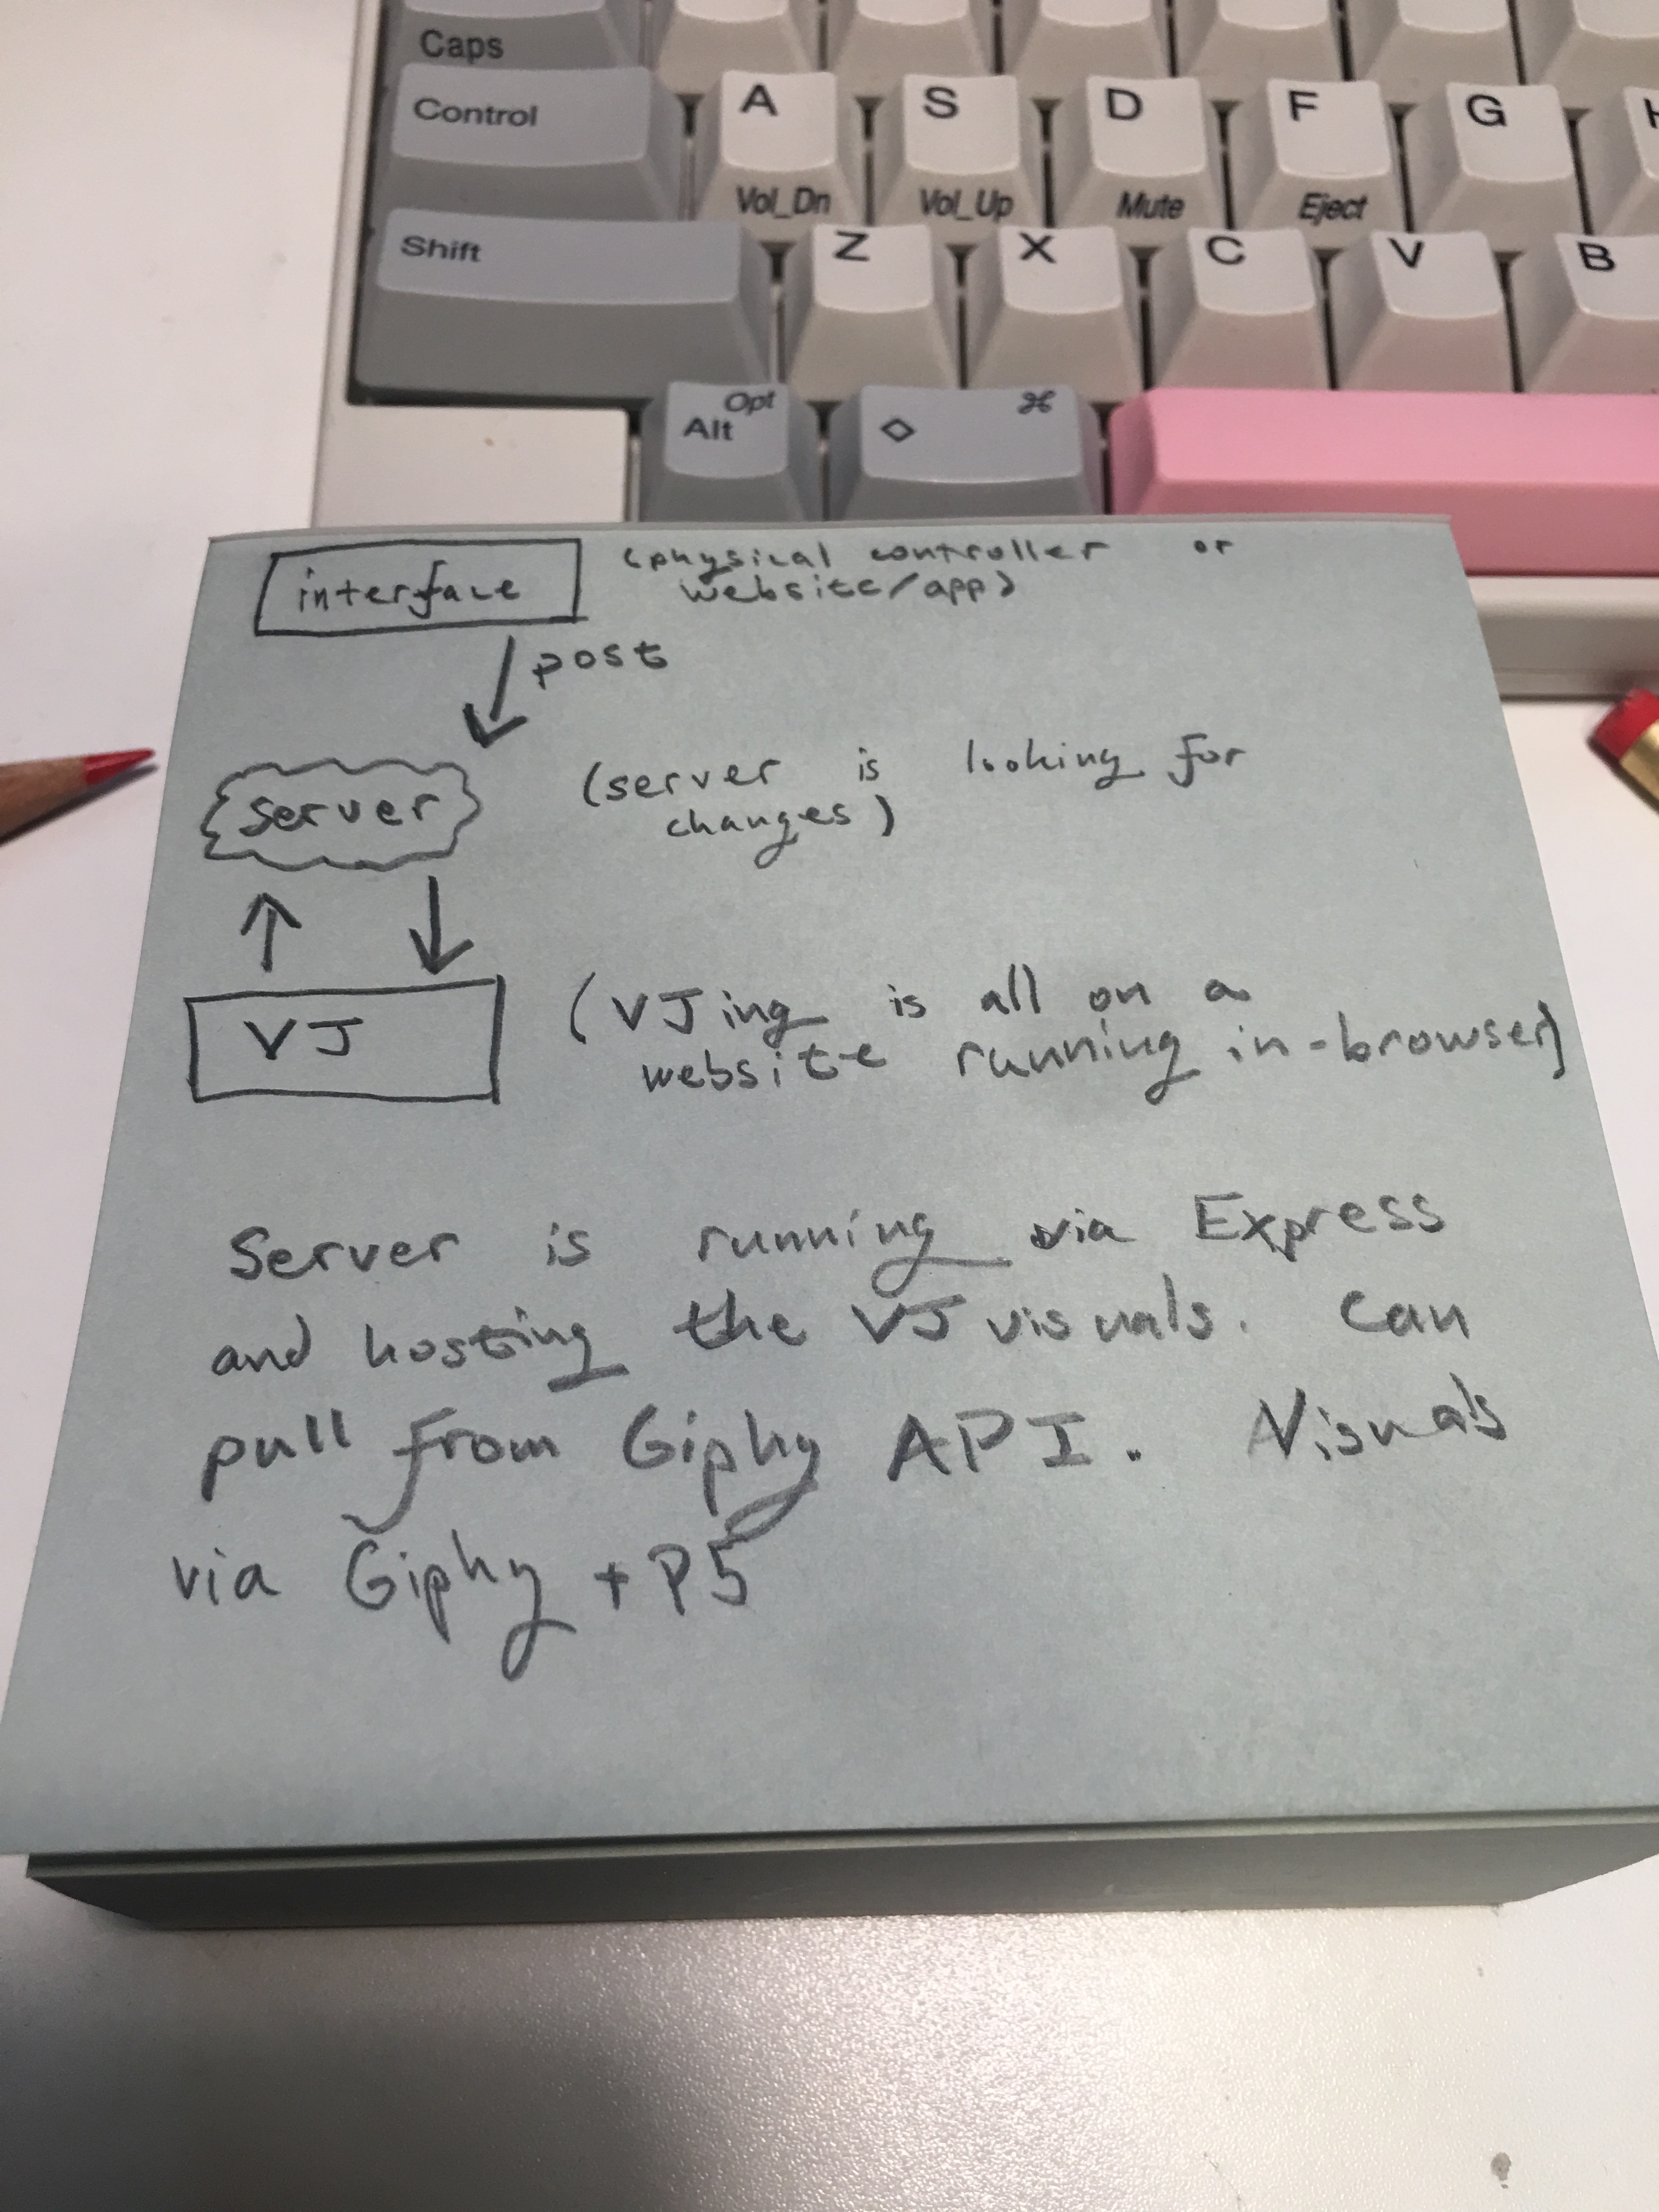 Caps
Control A S D F G
Vol_Dn Vol_Up Mute Eject
Shift Z X C V B
Opt
Alt ◇ ⌘
interface (physical controller or
website/app)
post
server (server is looking for
changes)
VJ (VJing is all on a
website running in-browser)
Server is running via Express
and hosting the VJ visuals. Can
pull from Giphy API. Visuals
via Giphy + P5